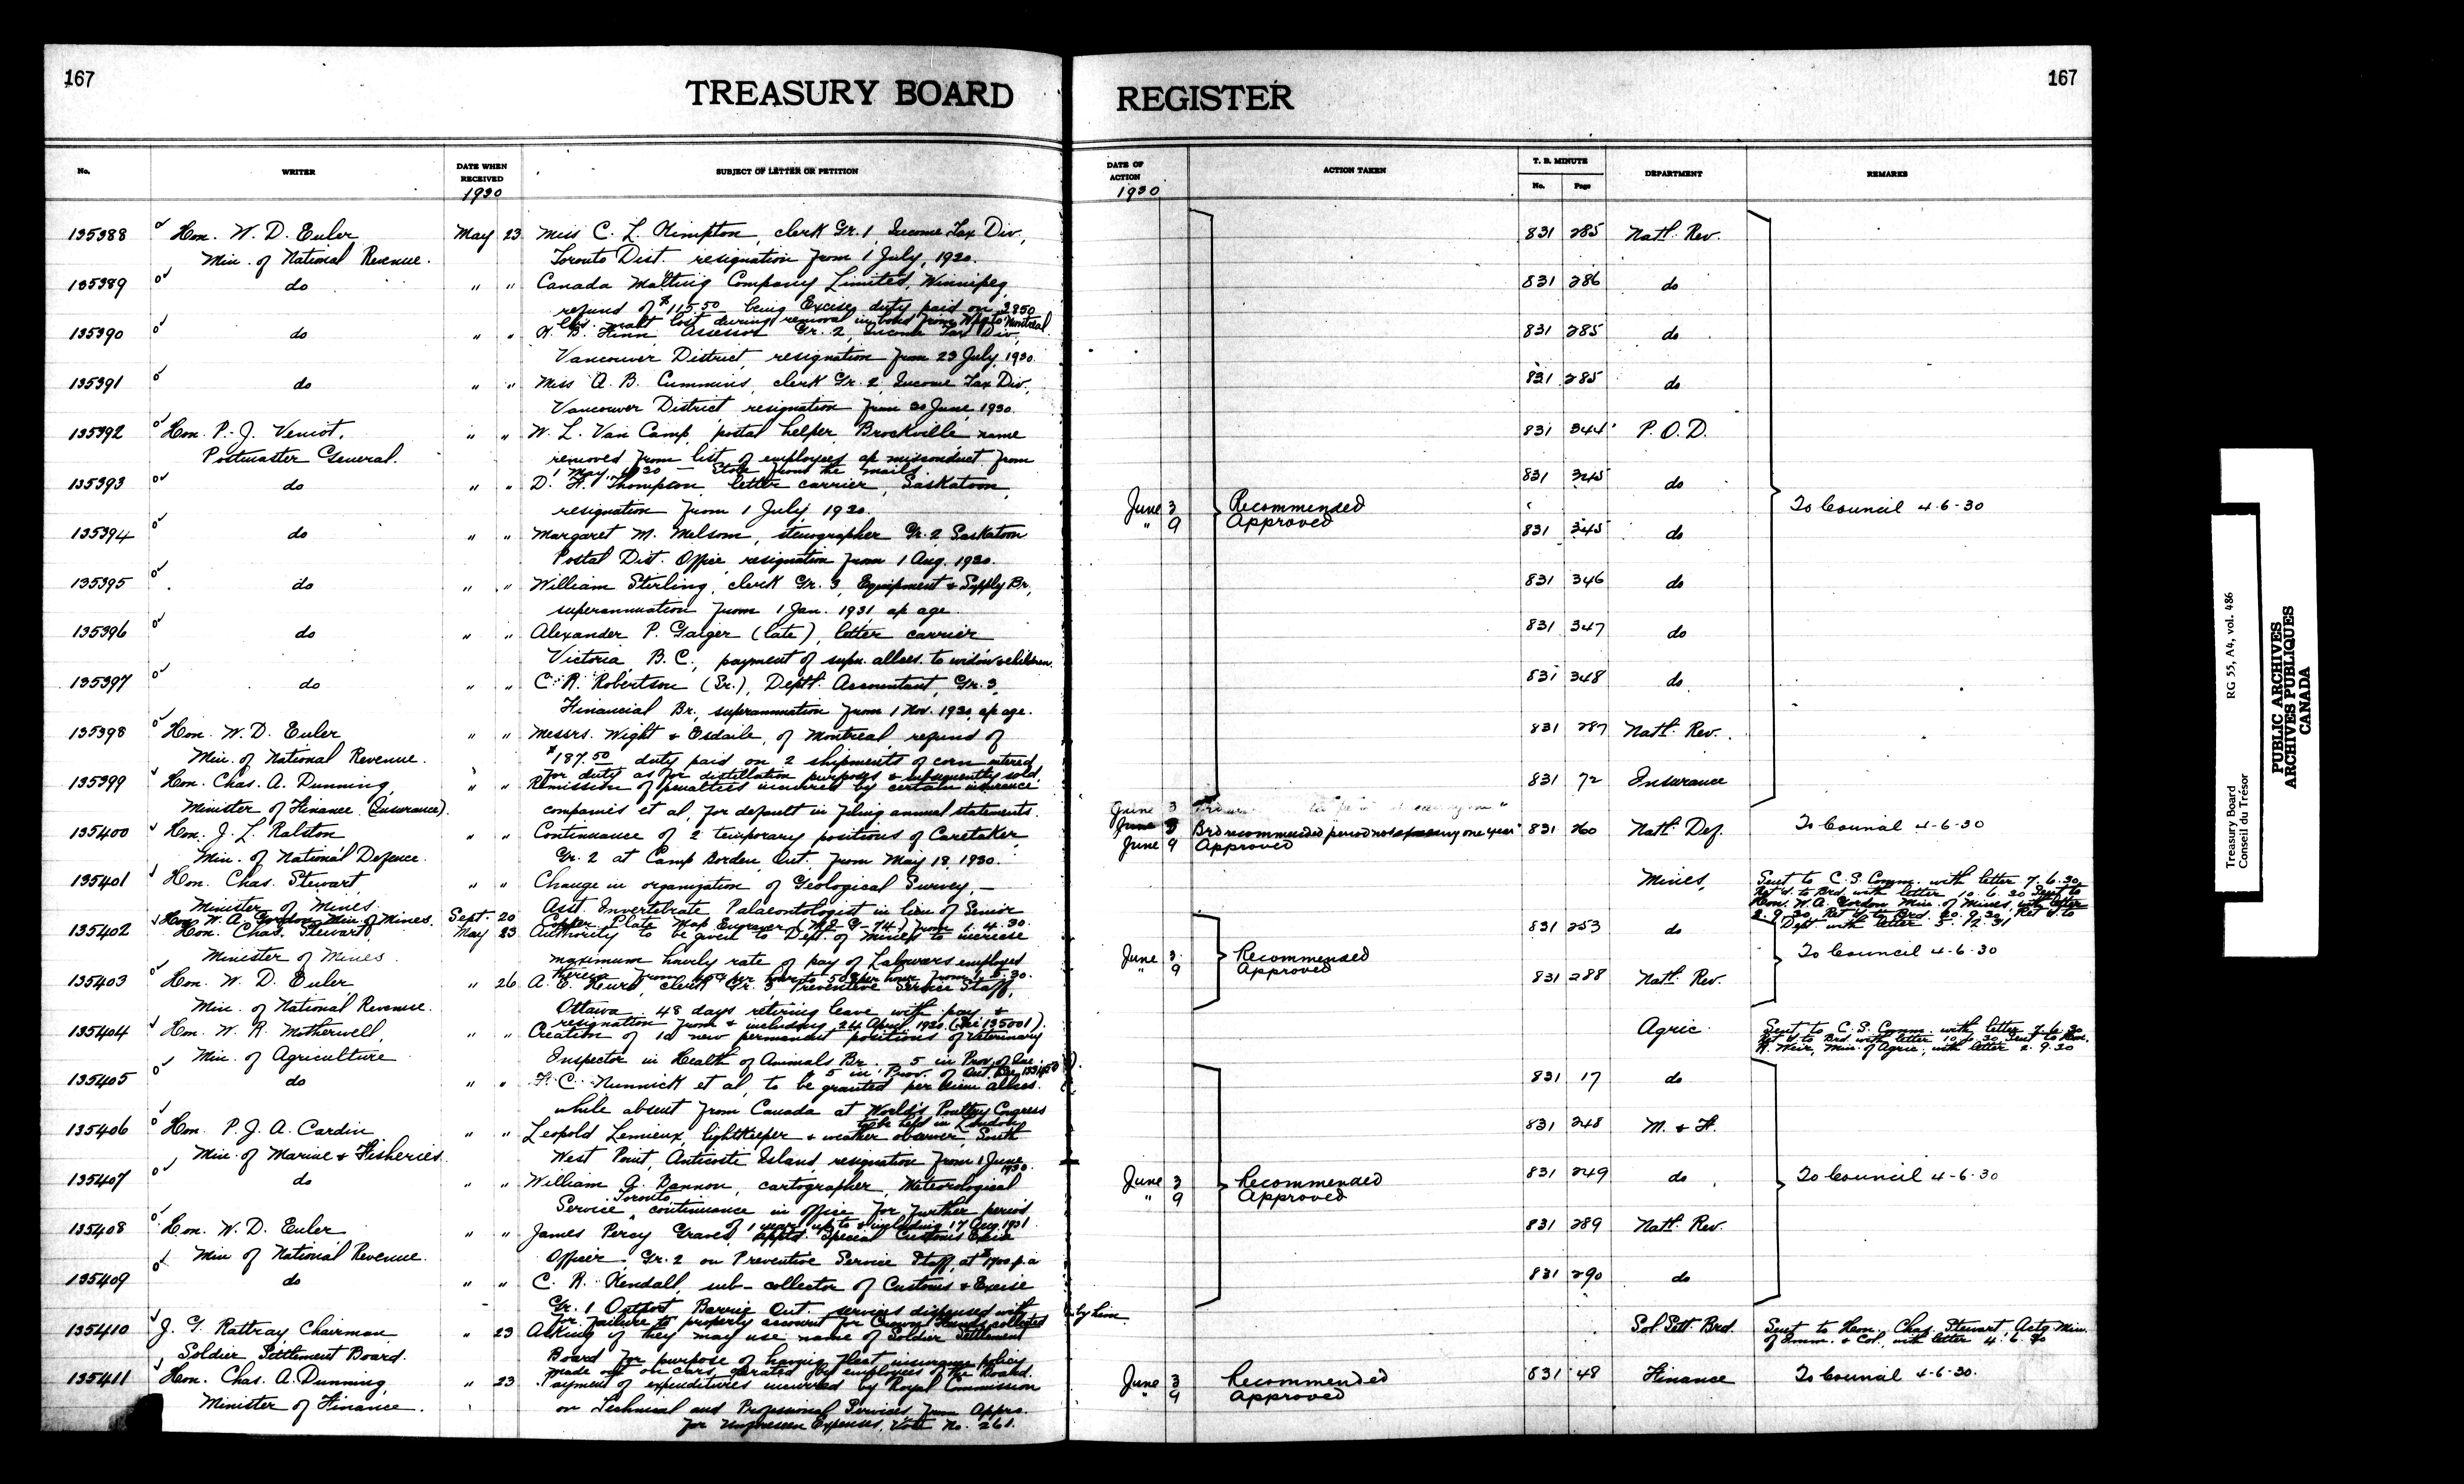 167
TREASURY BOARD
No.
WRITER
DATE WHEN RECEIVED
1930
SUBJECT OF LETTER OR PETITION
135388 Hon. W. D. Euler May 23 Miss C. L. Kimpton, clerk Gr. 1, Income Tax Div.,
Min. of National Revenue. Toronto Dist. resignation from 1 July, 1930.
135389 do " " Canada Malting Company Limited, Winnipeg,
refund of $115.50 being Excise duty paid on 3850
lbs. malt lost during removal in bond from Wpg to Montreal.
135390 do " " Assessor Gr. 2, Income Tax Div.,
Vancouver District, resignation from 23 July, 1930.
135391 do " " Miss A. B. Cummins, clerk Gr. 2 Income Tax Div.,
Vancouver District, resignation from 30 June, 1930.
135392 Hon. P. J. Veniot, " " W. L. Van Camp, postal helper, Brockville, name
Postmaster General. removed from list of employees a/c misconduct from
1 May, 1930 — Stole from the mails.
135393 do " " D. F. Thompson, letter carrier, Saskatoon,
resignation from 1 July 1930.
135394 do " " Margaret M. Melsom, stenographer Gr. 2 Saskatoon
Postal Dist. Office, resignation from 1 Aug. 1930.
135395 do " " William Stirling, clerk Gr. 3, Equipment & Supply Br.,
superannuation from 1 Jan. 1931 a/c age.
135396 do " " Alexander P. Gaiger (late), letter carrier
Victoria, B.C., payment of supn. allces. to widow & children.
135397 do " " C. R. Robertson (Sr.), Deptl. Accountant, Gr. 3,
Financial Br., superannuation from 1 Nov. 1930, a/c age.
135398 Hon. W. D. Euler " " Messrs. Wight & Esdaile, of Montreal, refund of
Min. of National Revenue. $187.50 duty paid on 2 shipments of corn entered
for duty as for distillation purposes & subsequently sold.
135399 Hon. Chas. A. Dunning, " " Remission of penalties incurred by certain insurance
Minister of Finance (Insurance). companies et al, for default in filing annual statements.
135400 Hon. J. L. Ralston " " Continuance of 2 temporary positions of Caretaker
Min. of National Defence. Gr. 2 at Camp Borden, Ont. from May 18, 1930.
135401 Hon. Chas. Stewart, " " Change in organization of Geological Survey, —
Minister of Mines. Asst. Invertebrate Palaeontologist in lieu of Senior
Hon. W. A. Gordon Min. of Mines. Sept. 20 Copper Plate Map Engraver from 1.4.30.
135402 Hon. Chas. Stewart, May 23 Authority to be given to Dept. of Mines to increase
Minister of Mines. maximum hourly rate of pay of Labourers employed
therein from per hour to 50¢ per hour, from
135403 Hon. W. D. Euler, " 26 A. E. clerk Gr. 3, Preventive Service Staff,
Min. of National Revenue. Ottawa, 48 days retiring leave with pay &
resignation from & including 24 April, 1930. (See 135001).
135404 Hon. W. R. Motherwell, " " Creation of 10 new permanent positions of Veterinary
Min. of Agriculture Inspector in Health of Animals Br. — 5 in Prov. of Que.
& 5 in Prov. of Ont.
135405 do " " F. C. Nunnick et al, to be granted per diem allces.
while absent from Canada at World's Poultry Congress
to be held in London.
135406 Hon. P. J. A. Cardin " " Leopold Lemieux, lightkeeper & weather observer, South
Min. of Marine & Fisheries. West Point, Anticosti Island, resignation from 1 June, 1930.
135407 do " " William G. Bannon, cartographer, Meteorological
Service, Toronto, continuance in office for further period
of 1 year, up to & including 17 Aug. 1931.
135408 Hon. W. D. Euler " " James Percy Graves, apptd. Special Customs Excise
Min of National Revenue. Officer, Gr. 2 on Preventive Service Staff, at p.a.
135409 do " " C. R. Kendall, sub-collector of Customs & Excise
Gr. 1 Outport Barrie Ont. services dispensed with
for failure to properly account for Crown Funds collected by him
135410 J. G. Rattray, Chairman, " 23 Asking if they may use name of Soldier Settlement
Soldier Settlement Board. Board for purpose of having fleet insurance policy
made out on cars operated by employees of the Board.
135411 Hon. Chas. A. Dunning, " 23 Payment of expenditures incurred by Royal Commission
Minister of Finance. on Technical and Professional Services from Appro.
for Unforeseen Expenses, Vote No. 261.
REGISTER
167
DATE OF ACTION
1930
ACTION TAKEN
T. B. MINUTE
No.
Page
DEPARTMENT
REMARKS
831 285 Natl. Rev.
831 286 do
831 285 do
831 285 do
831 344 P. O. D.
831 345 do
June 3 Recommended To Council 4-6-30
" 9 Approved
831 345 do
831 346 do
831 347 do
831 348 do
831 287 Natl. Rev.
831 72 Insurance
June 3
June 3 Brd recommended period not exceeding one year 831 260 Natl. Def. To Council 4-6-30
June 9 Approved
Mines, Sent to C. S. Comm. with letter 7.6.30
Ret'd. to Brd. with letter 10.6.30 Sent to
Hon. W. A. Gordon Min. of Mines, with letter
2.9.30, Ret'd to Brd. 20.9.30, Ret'd to
Dept. with letter 5.12.31
831 253 do
To Council 4-6-30
June 3 Recommended
" 9 Approved
831 288 Natl. Rev.
Agric. Sent to C. S. Comm. with letter 7.6.30
Ret'd to Brd. with letter 10.6.30 Sent to Hon.
R. Weir, Min. of Agric., with letter 2.9.30
831 17 do
831 248 M. & F.
831 249 do
June 3 Recommended To Council 4-6-30
" 9 Approved
831 289 Natl. Rev.
831 290 do
Sol. Sett. Brd. Sent to Hon. Chas. Stewart, Actg. Min.
of Imm. & Col., with letter 4.6.30
June 3 Recommended 831 48 Finance To Council 4-6-30.
" 9 Approved
Treasury Board
Conseil du Trésor
RG 55, A4, vol. 486
PUBLIC ARCHIVES
ARCHIVES PUBLIQUES
CANADA